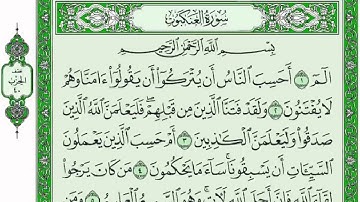 سُورَةُ العَنكَبُوتِ
بِسْمِ اللَّهِ الرَّحْمَٰنِ الرَّحِيمِ
الٓمٓ ١ أَحَسِبَ ٱلنَّاسُ أَن يُتْرَكُوٓا۟ أَن يَقُولُوٓا۟ ءَامَنَّا وَهُمْ
لَا يُفْتَنُونَ ٢ وَلَقَدْ فَتَنَّا ٱلَّذِينَ مِن قَبْلِهِمْ ۖ فَلَيَعْلَمَنَّ ٱللَّهُ ٱلَّذِينَ
صَدَقُوا۟ وَلَيَعْلَمَنَّ ٱلْكَٰذِبِينَ ٣ أَمْ حَسِبَ ٱلَّذِينَ يَعْمَلُونَ
ٱلسَّيِّـَٔاتِ أَن يَسْبِقُونَا ۚ سَآءَ مَا يَحْكُمُونَ ٤ مَن كَانَ يَرْجُوا۟
لِقَآءَ ٱللَّهِ فَإِنَّ أَجَلَ ٱللَّهِ لَـَٔاتٍ ۚ وَهُوَ ٱلسَّمِيعُ ٱلْعَلِيمُ ٥ وَمَن
نصف
الحزب
٤٠